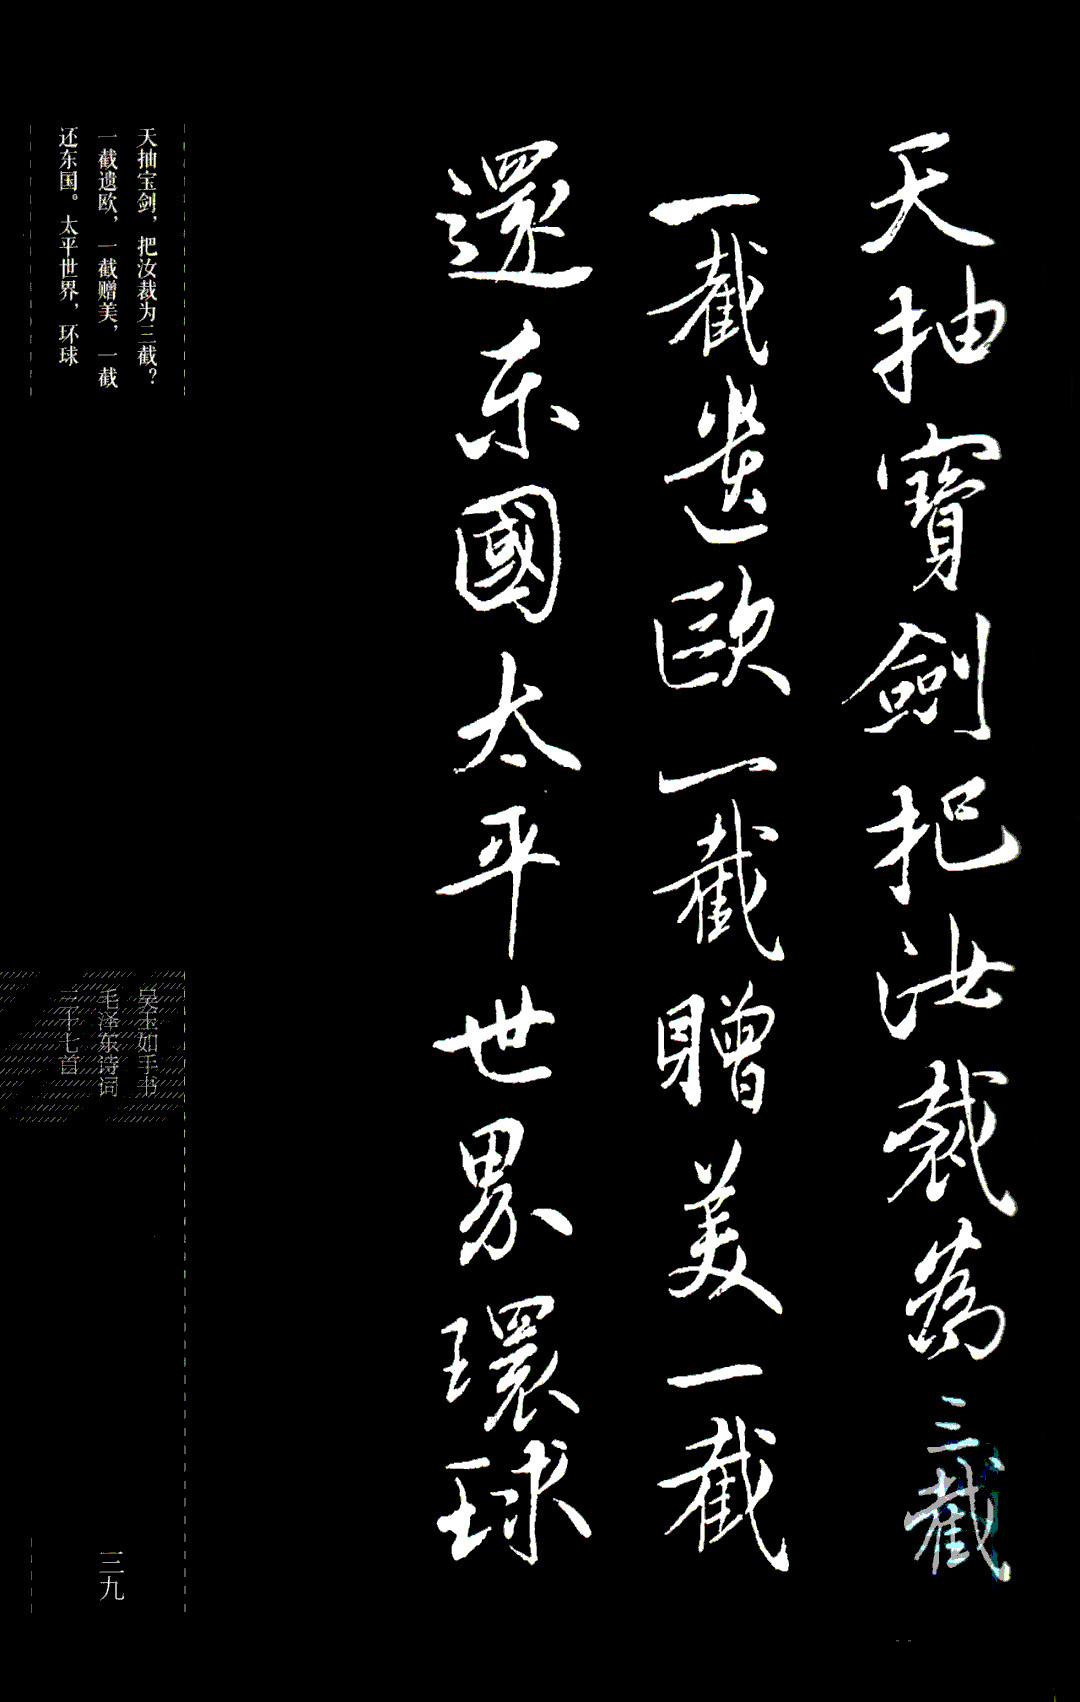 天抽寶劍把汝裁為三截
一截遺歐一截贈美一截
還東國太平世界環球
天抽宝剑，把汝裁为三截？
一截遗欧，一截赠美，一截
还东国。太平世界，环球
吴玉如手书
毛泽东诗词
三十七首
三九